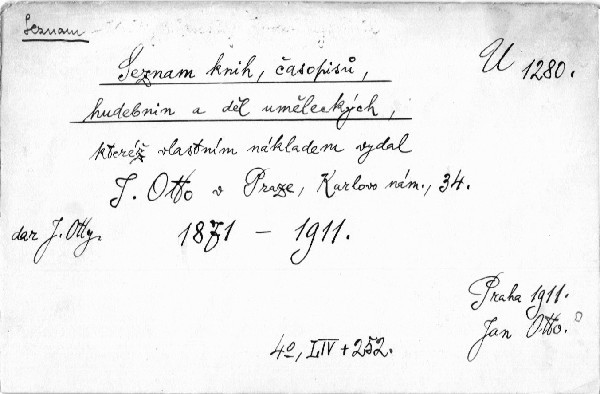 Seznam
U 1280.
Seznam knih, časopisů,
hudebnin a děl uměleckých,
kteréž vlastním nákladem vydal
J. Otto v Praze, Karlovo nám., 34.
dar J. Otty. 1871 – 1911.
Praha 1911.
Jan Otto.
4º, LIV + 252.